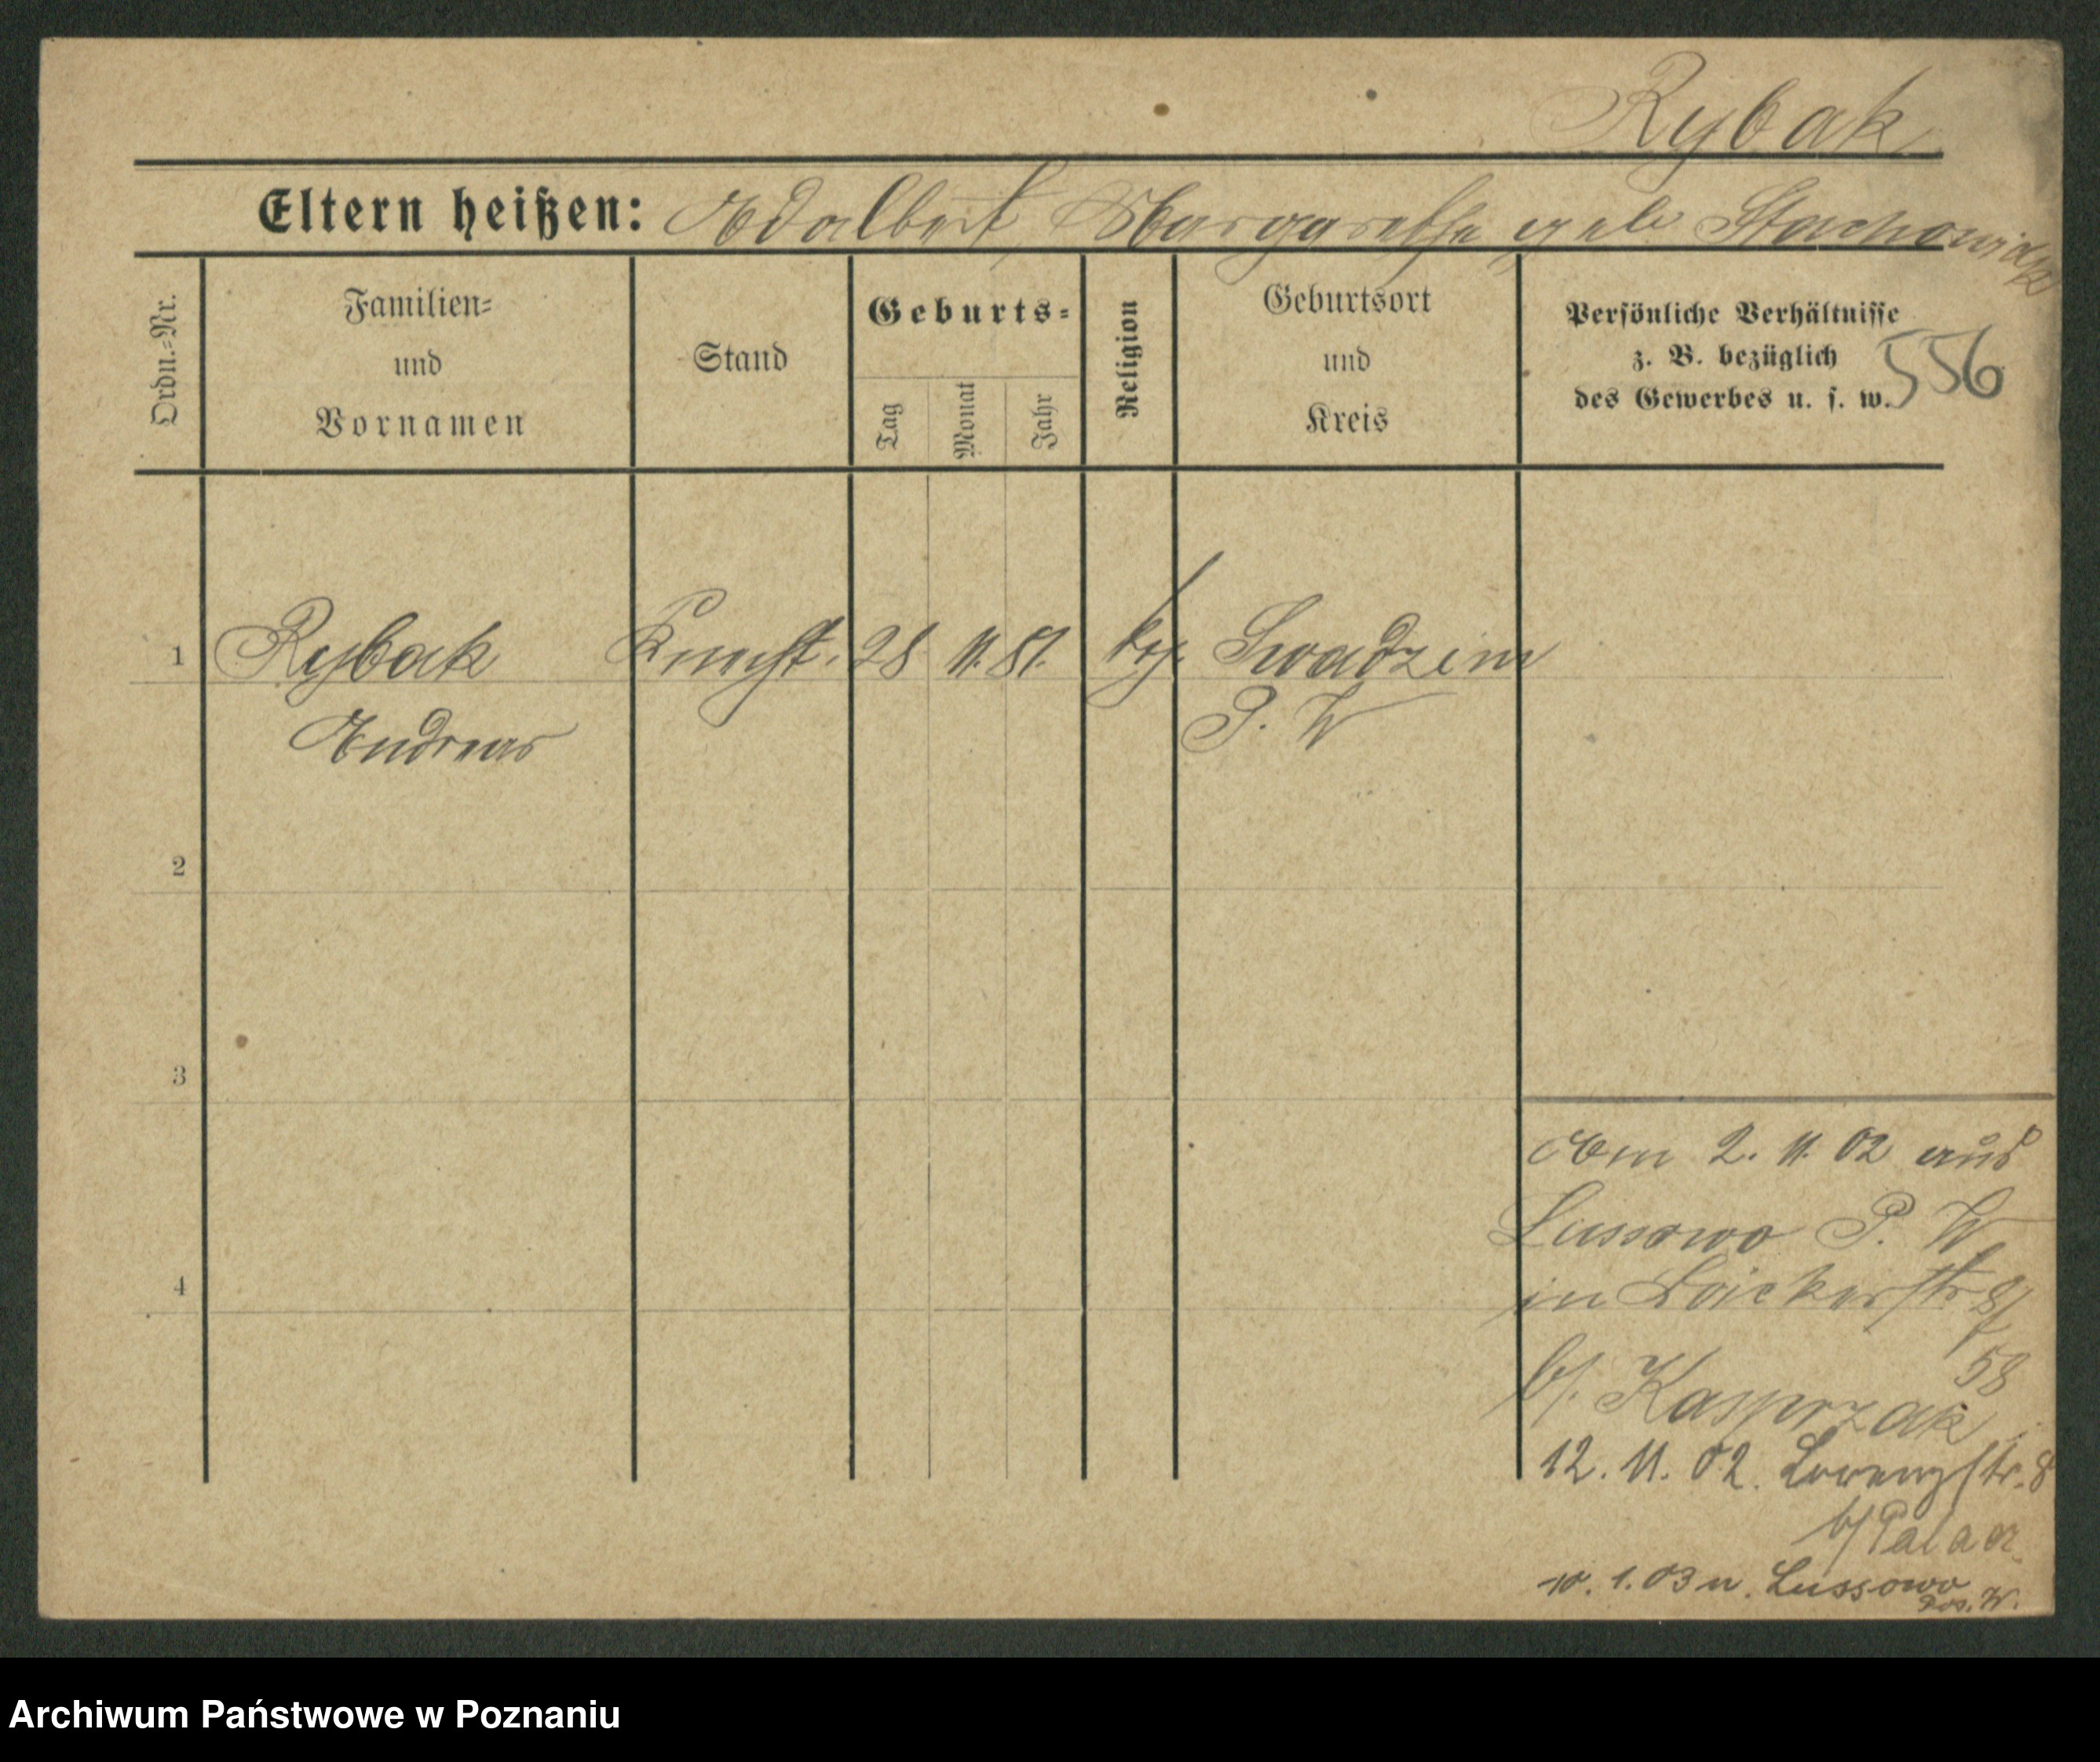 Rybak
Eltern heißen: Adalbert, Margarethe geb Stachowiak
Ordn.-Nr.
Familien-
und
Vornamen
Stand
Geburts-
Tag
Monat
Jahr
Religion
Geburtsort
und
Kreis
Persönliche Verhältnisse
z. B. bezüglich
des Gewerbes u. s. w.
556
1 Rybak 28 11. 81. Swadzim
Andreas P. W
2
3
4
Am 2. 11. 02 aus
Lussowo P. W
in
58
b/. Kasprzak
12. 11. 02. Lorenzstr. 8
b/
10. 1. 03 n. Lussowo
Pos. W.
Archiwum Państwowe w Poznaniu